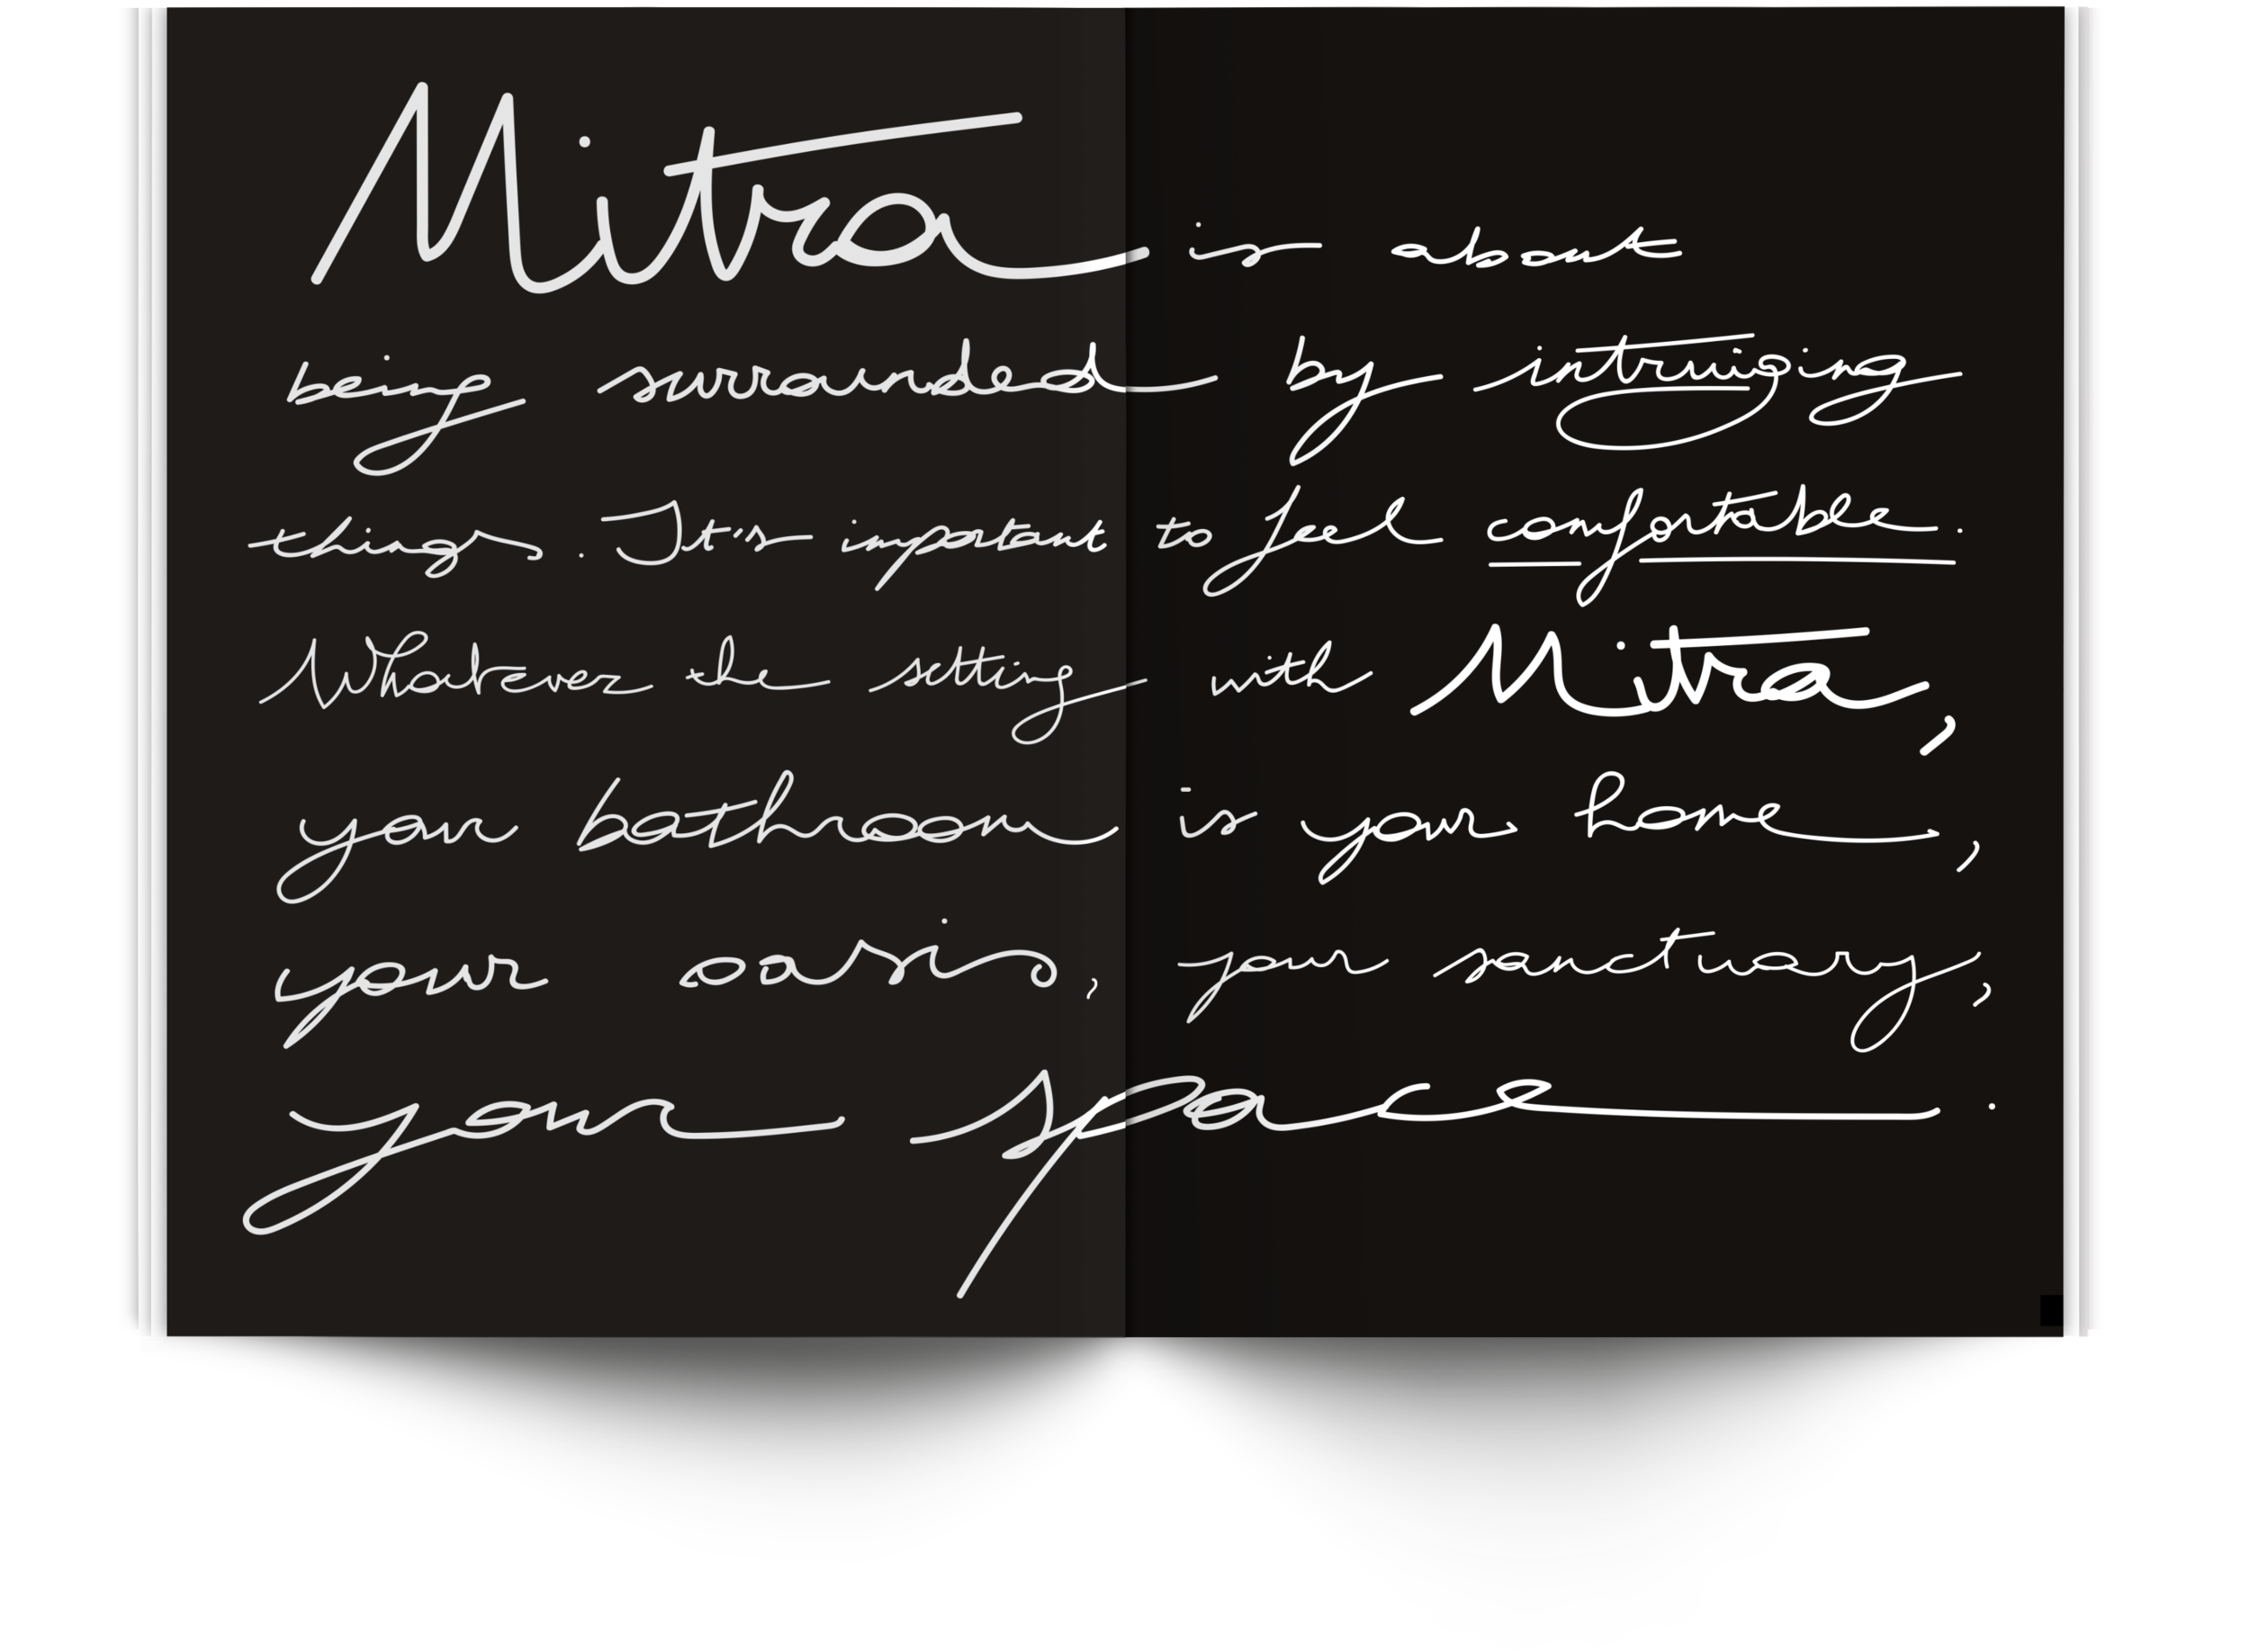 Mitra is about
being surrounded by intruiging
things. It's important to feel comfortable.
Whatever the setting with Mitra,
your bathroom is your home,
your oasis, your sanctuary,
your space.